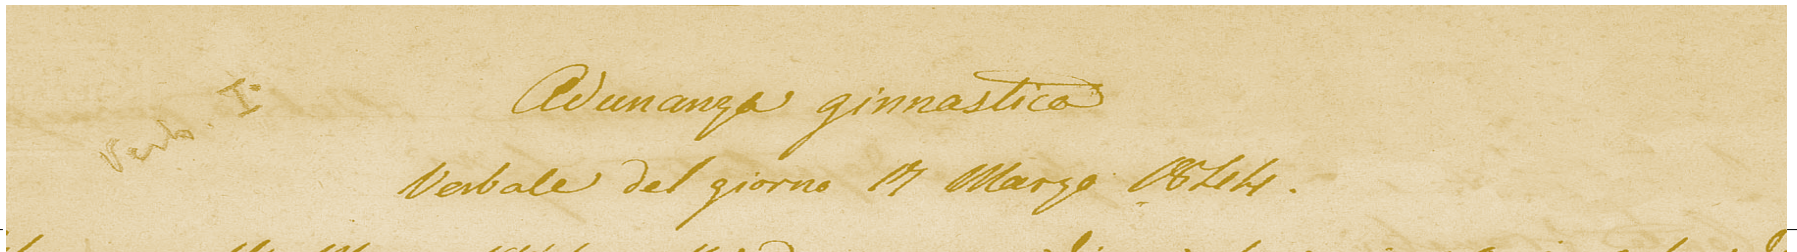 Verb. I°
Adunanza ginnastica
Verbale del giorno 17 Marzo 1844.